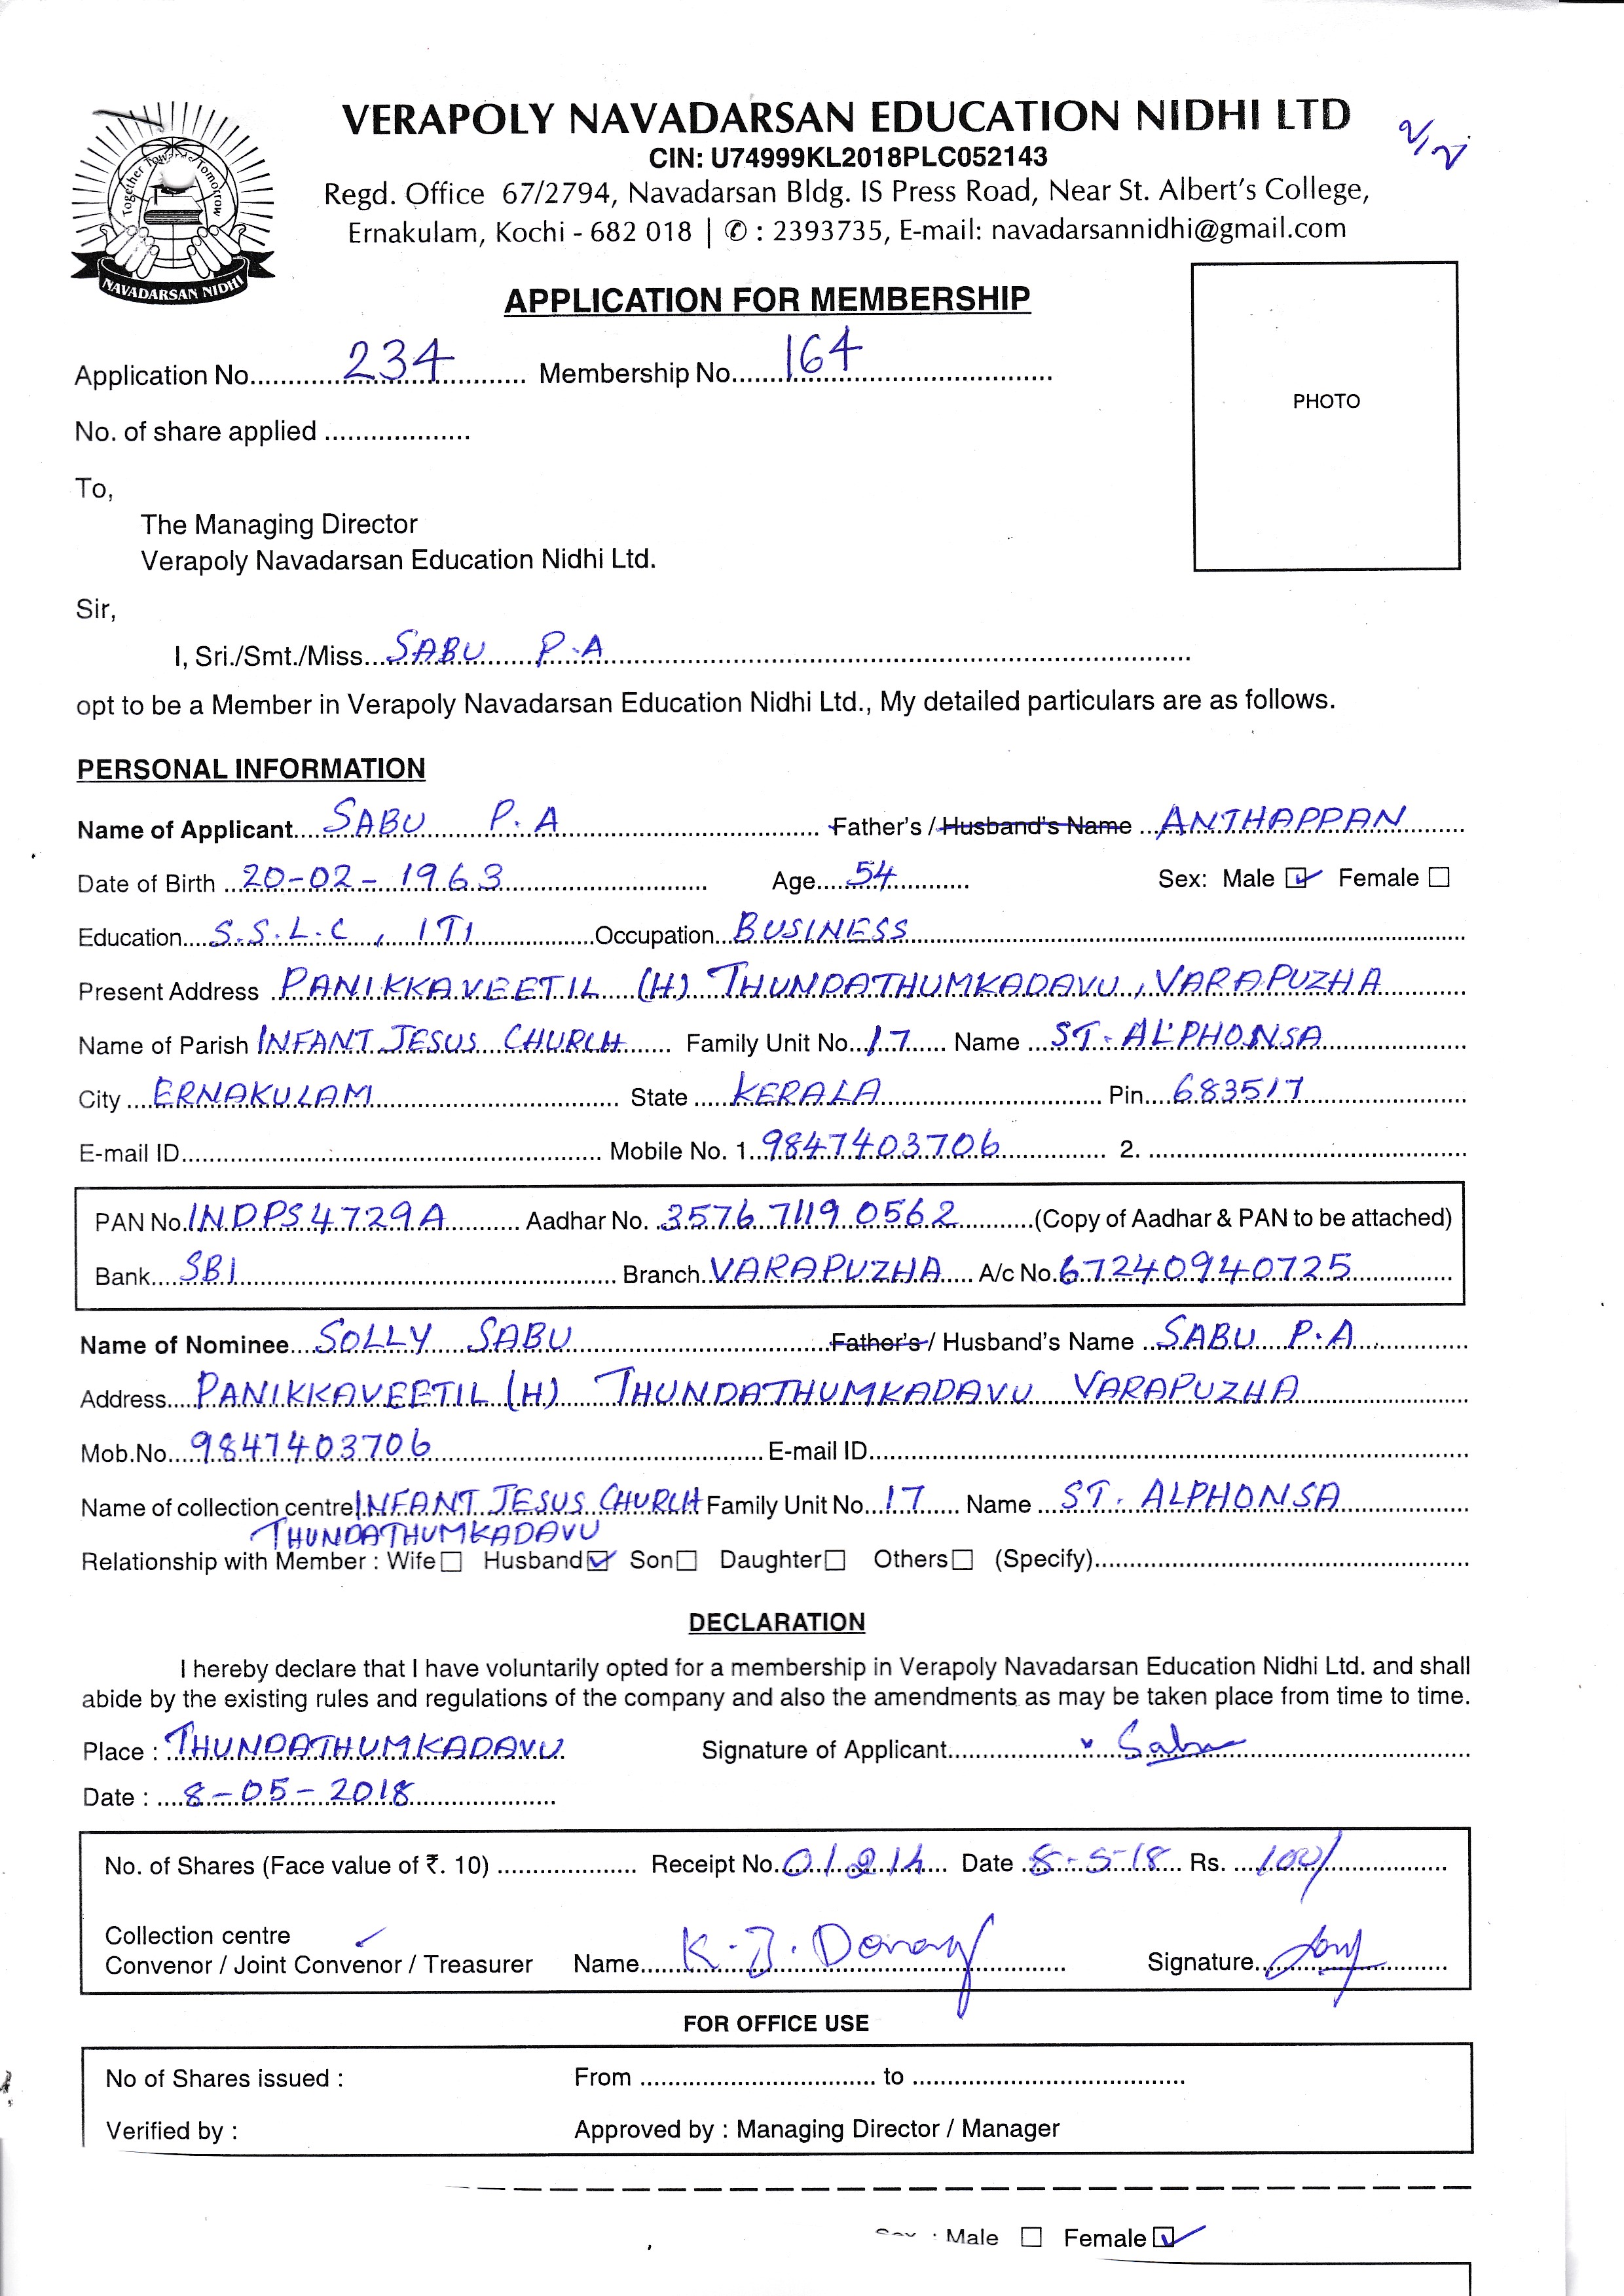 VERAPOLY NAVADARSAN EDUCATION NIDHI LTD
CIN: U74999KL2018PLC052143
Regd. Office 67/2794, Navadarsan Bldg. IS Press Road, Near St. Albert's College,
Ernakulam, Kochi - 682 018 | ✆ : 2393735, E-mail: navadarsannidhi@gmail.com
Together Towards Tomorrow
NAVADARSAN NIDHI
APPLICATION FOR MEMBERSHIP
Application No. 234 Membership No. 164
PHOTO
No. of share applied
To,
The Managing Director
Verapoly Navadarsan Education Nidhi Ltd.
Sir,
I, Sri./Smt./Miss. SABU P.A
opt to be a Member in Verapoly Navadarsan Education Nidhi Ltd., My detailed particulars are as follows.
PERSONAL INFORMATION
Name of Applicant SABU P.A Father's / Husband's Name ANTHAPPAN
Date of Birth 20-02-1963 Age 54 Sex: Male ☑ Female ☐
Education S.S.L.C, ITI Occupation BUSINESS
Present Address PANIKKAVEETIL (H) THUNDATHUMKADAVU, VARAPUZHA
Name of Parish INFANT JESUS CHURCH Family Unit No. 17 Name ST. ALPHONSA
City ERNAKULAM State KERALA Pin 683517
E-mail ID Mobile No. 1. 9847403706 2.
PAN No. INDPS4729A Aadhar No. 3576 7119 0562 (Copy of Aadhar & PAN to be attached)
Bank SBI Branch VARAPUZHA A/c No. 67240940725
Name of Nominee SOLLY SABU Father's / Husband's Name SABU P.A
Address PANIKKAVEETIL (H) THUNDATHUMKADAVU VARAPUZHA
Mob.No. 9847403706 E-mail ID
Name of collection centre INFANT JESUS CHURCH Family Unit No. 17 Name ST. ALPHONSA
THUNDATHUMKADAVU
Relationship with Member : Wife ☐ Husband ☑ Son ☐ Daughter ☐ Others ☐ (Specify)
DECLARATION
I hereby declare that I have voluntarily opted for a membership in Verapoly Navadarsan Education Nidhi Ltd. and shall
abide by the existing rules and regulations of the company and also the amendments as may be taken place from time to time.
Place : THUNDATHUMKADAVU Signature of Applicant Sabu
Date : 8-05-2018
No. of Shares (Face value of ₹. 10) Receipt No. Date 8-5-18 Rs. 100/
Collection centre
Convenor / Joint Convenor / Treasurer Name K.J. Signature
FOR OFFICE USE
No of Shares issued : From to
Verified by : Approved by : Managing Director / Manager
Male ☐ Female ☑